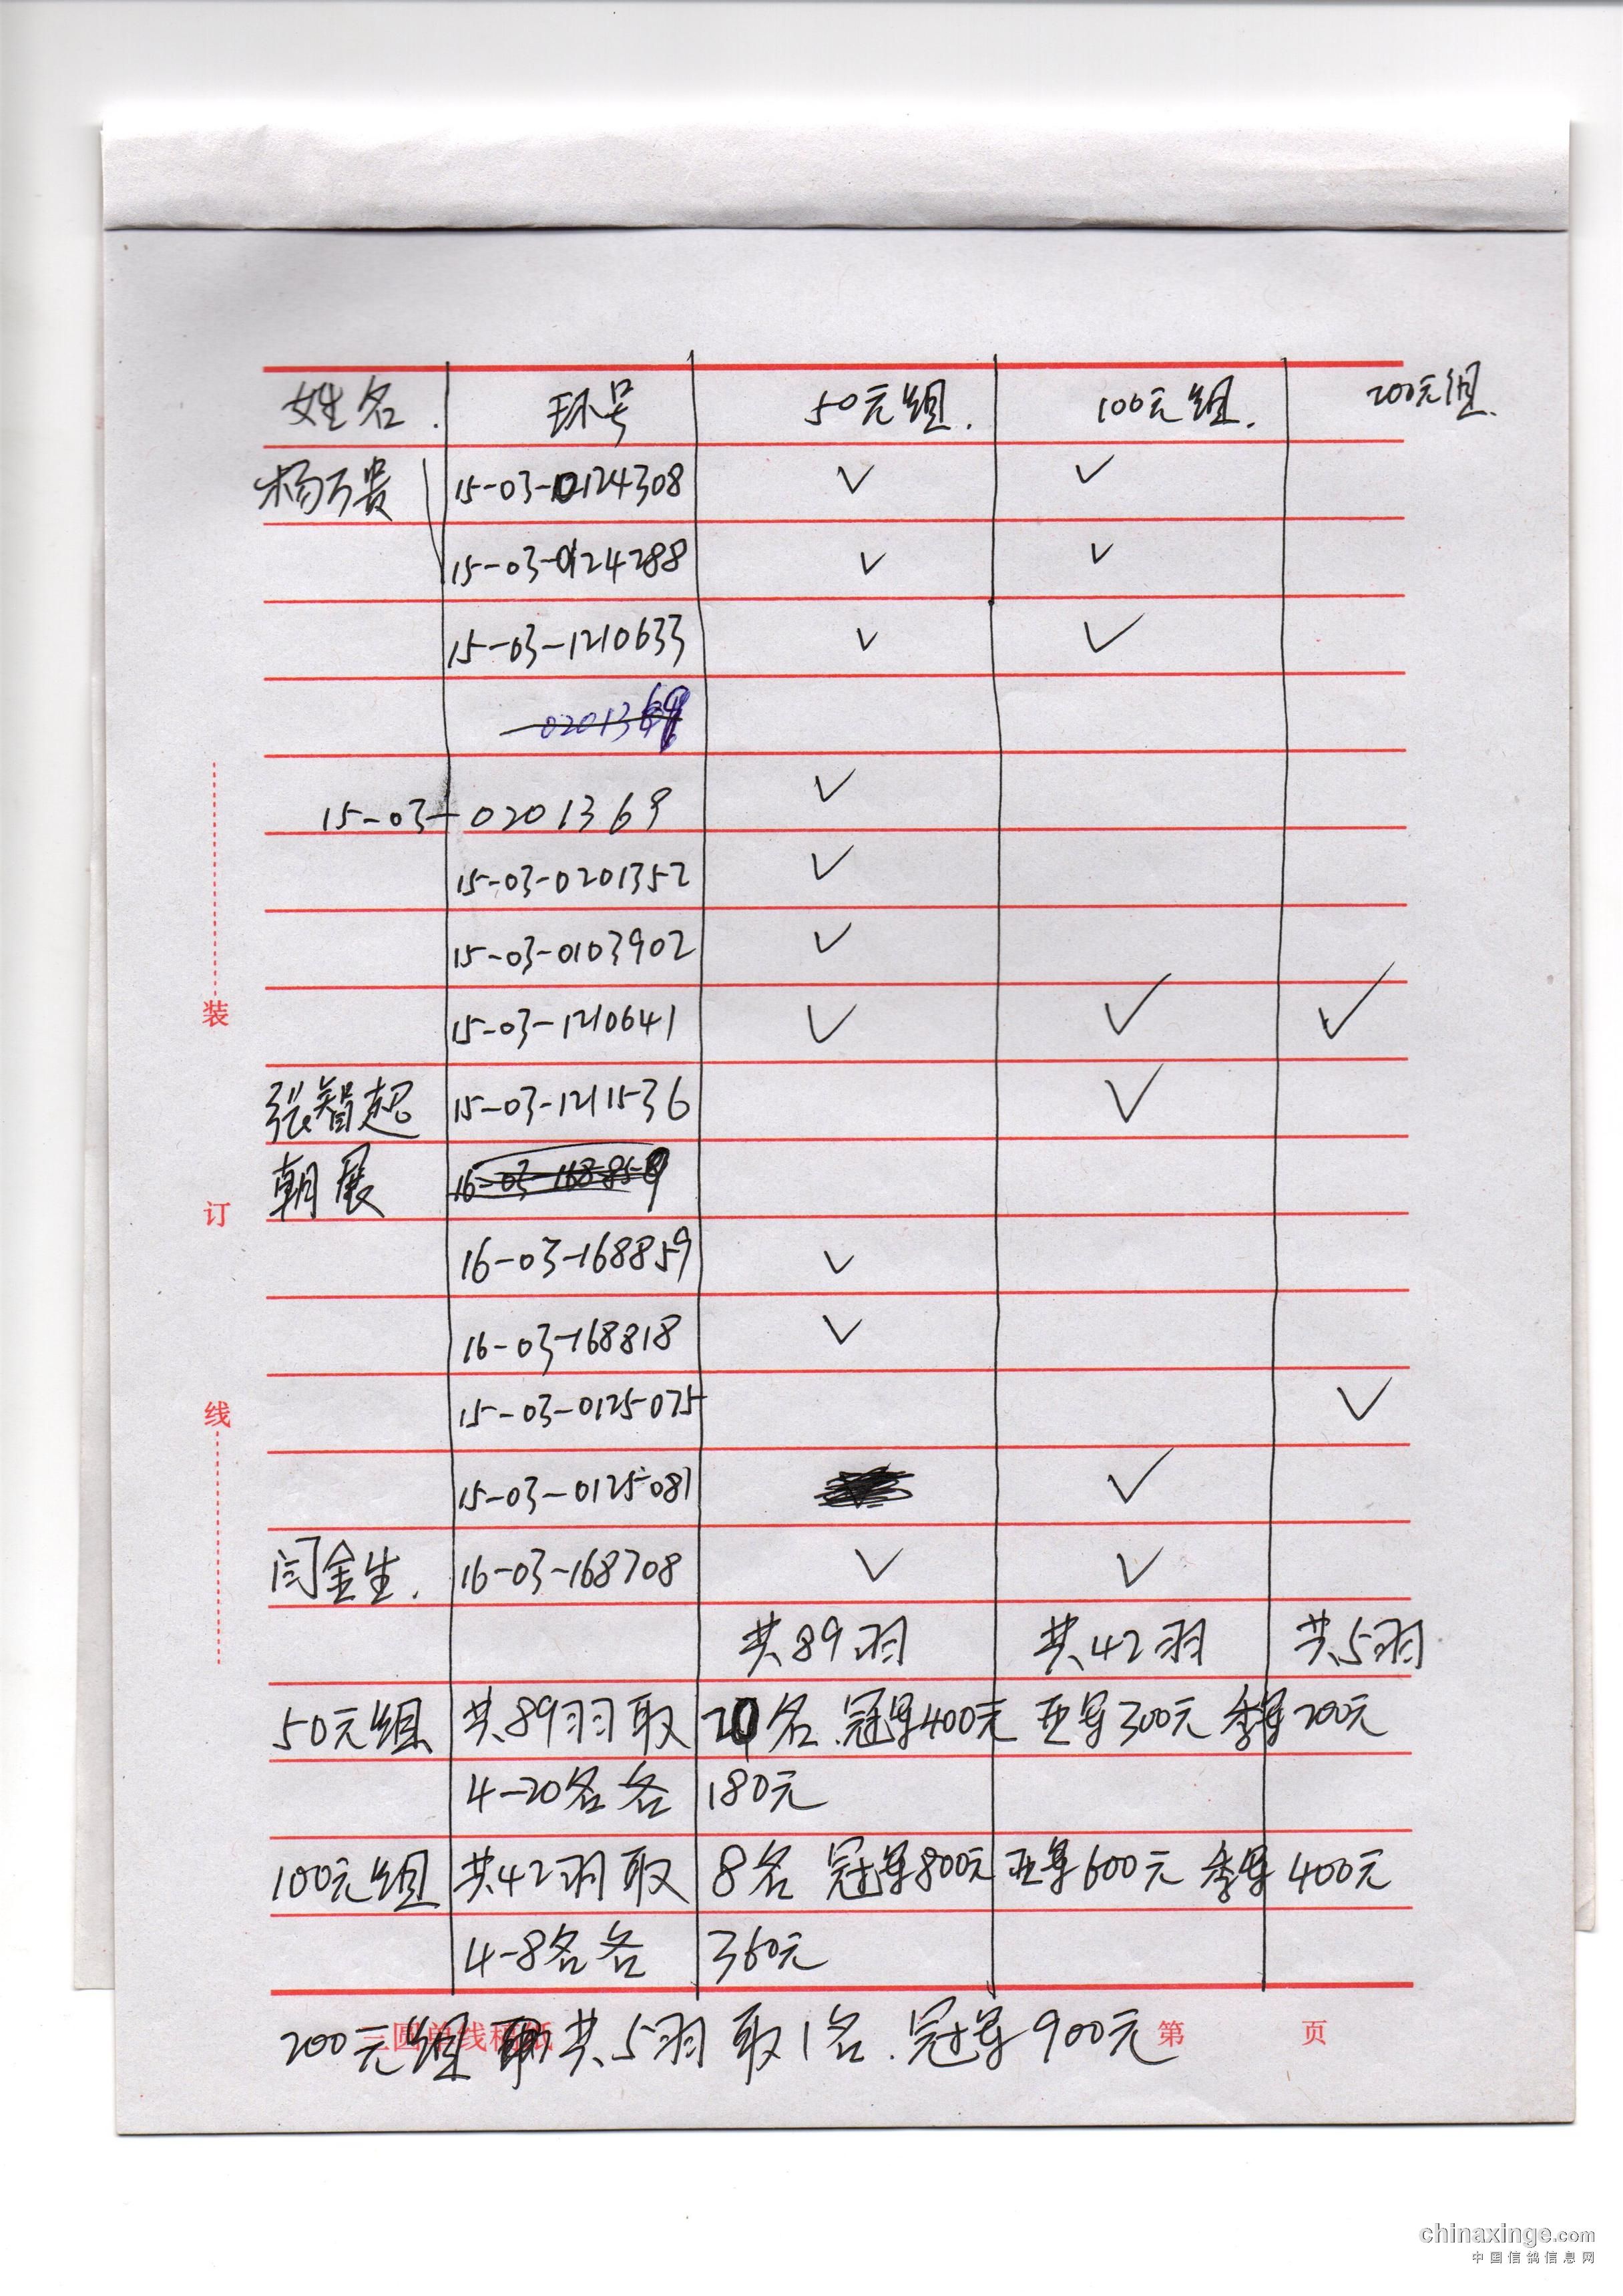 姓名. 环号 50元组. 100元组. 200元组.
杨万贵 15-03-0124308 ✓ ✓
15-03-0124288 ✓ ✓
15-03-1210633 ✓ ✓
020136
15-03-0201369 ✓
15-03-0201352 ✓
15-03-0103902 ✓
15-03-1210641 ✓ ✓ ✓
张智超 15-03-1211536 ✓
朝展 16-03-168859
16-03-168859 ✓
16-03-168818 ✓
15-03-0125075 ✓
15-03-0125081 ✓
闫金生. 16-03-168708 ✓ ✓
共89羽 共42羽 共5羽
50元组 共89羽取20名.冠军400元 亚军300元 季军200元
4-20名各180元
100元组 共42羽取8名 冠军800元 亚军600元 季军400元
4-8名各360元
200元组 共5羽取1名.冠军900元
三圆单线稿纸 第 页
装
订
线
chinaxinge.com
中国信鸽信息网